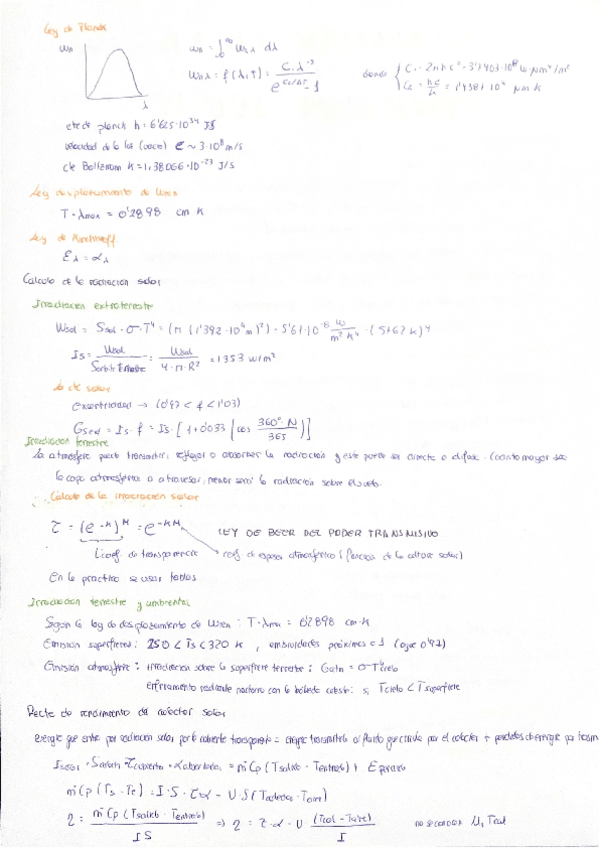 Ley de Planck
Wλ
λ
Wb = ∫₀^∞ Wbλ dλ
Wbλ = f(λ,T) = C₁ λ⁻⁵ / (e^(C₂/λT) - 1)
donde
h = 6'625·10³⁴ JS
velocidad de la luz (vacío) C ~ 3·10⁸ m/s
cte Boltzman K = 1,38066·10⁻²³ J/S
Ley desplazamiento de Wien
T·λmax = 0'2898 cm K
Ley de Kirchhoff
Ελ = αλ
Calculo de la radiación solar
Irradiación extraterrestre
Wsol = Ssol · σ · T⁴ = (π (1'392·10⁹ m)²) · 5'67·10⁻⁸ W/m²K⁴ · (5762 K)⁴
Is = Wsol / Sorbita terrestre = Wsol / 4·π·R² = 1353 W/m²
la cte solar
excentricidad → (0'97 < f < 1'03)
Gsext = Is · f = Is · [1 + 0'033 (cos 360°·N / 365)]
Irradiación terrestre
la atmósfera puede transmitir, reflejar o absorber la radiación y este puede ser directa o difusa. Cuanto mayor sea
la capa atmosférica a atravesar, menor será la radiación sobre el suelo.
Calculo de la irradiación solar
τ = (e⁻ᴷ)ᴹ = e⁻ᴷᴹ
LEY DE BEER DEL PODER TRANSMISIVO
coef. de transparencia
coef. de espesor atmosférico (función de la altura solar)
En la practica se usar tablas
Irradiación terrestre y ambiental
Según la ley de desplazamiento de Wien: T·λm = 0'2898 cm·K
Emisión superficies: 250 < Ts < 320 K, emisividades próximas a 1 (agua 0'92)
Emisión atmosférica: irradiación sobre la superficie terrestre: Gatm = σT⁴cielo
Enfriamiento radiante nocturno con la bóveda celeste: si Tcielo < Tsuperficie
Recta de rendimiento del colector solar
Energía que entra por radiación solar por la cubierta transparente = energía transmitida al fluido que circula por el colector + perdidas de energía por
· Scaptn · τcubierta · αabsorbedor = ṁCp(Tsalida - Tentrada) + Eperdida
ṁCp(Ts - Te) = I·S·τα - U·S(Tcolector - Taire)
η = ṁCp(Tsalida - Tentrada) / IS ⇒ η = τ·α - U (Tcol - Taire) / I
no se conocen U, Tcol